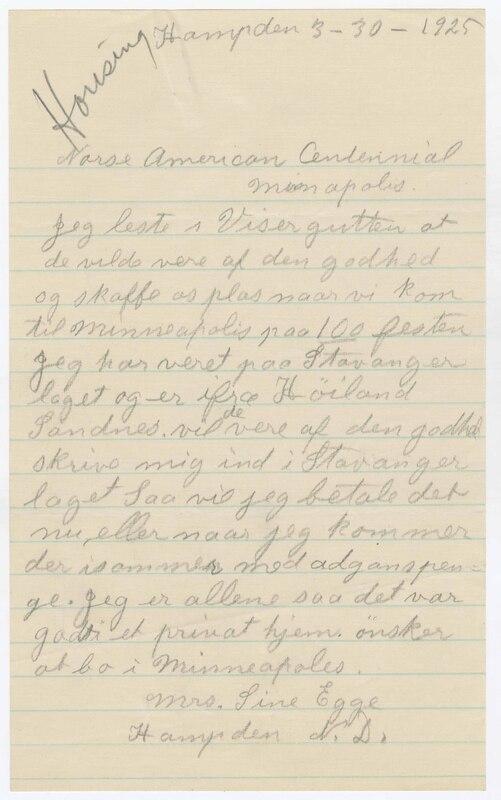 Housing
Hampden 3-30-1925
Norse American Centennial
Minapolis.
Jeg leste i Visergutten at
de vilde vere af den godhed
og skaffe os plas naar vi kom
til Minneapolis paa 100 festen
Jeg har veret paa Stavanger
laget og er ifra Höiland
Sandnes. vil de vere af den godhed
skrive mig ind i Stavanger
laget Saa vil jeg betale det
nu, eller naar jeg kommer
der isommer med adganspen-
ge. Jeg er allene saa det var
godt i et privat hjem. önsker
at bo i Minneapoles.
Mrs. Sine Egge
Hampden N.D.